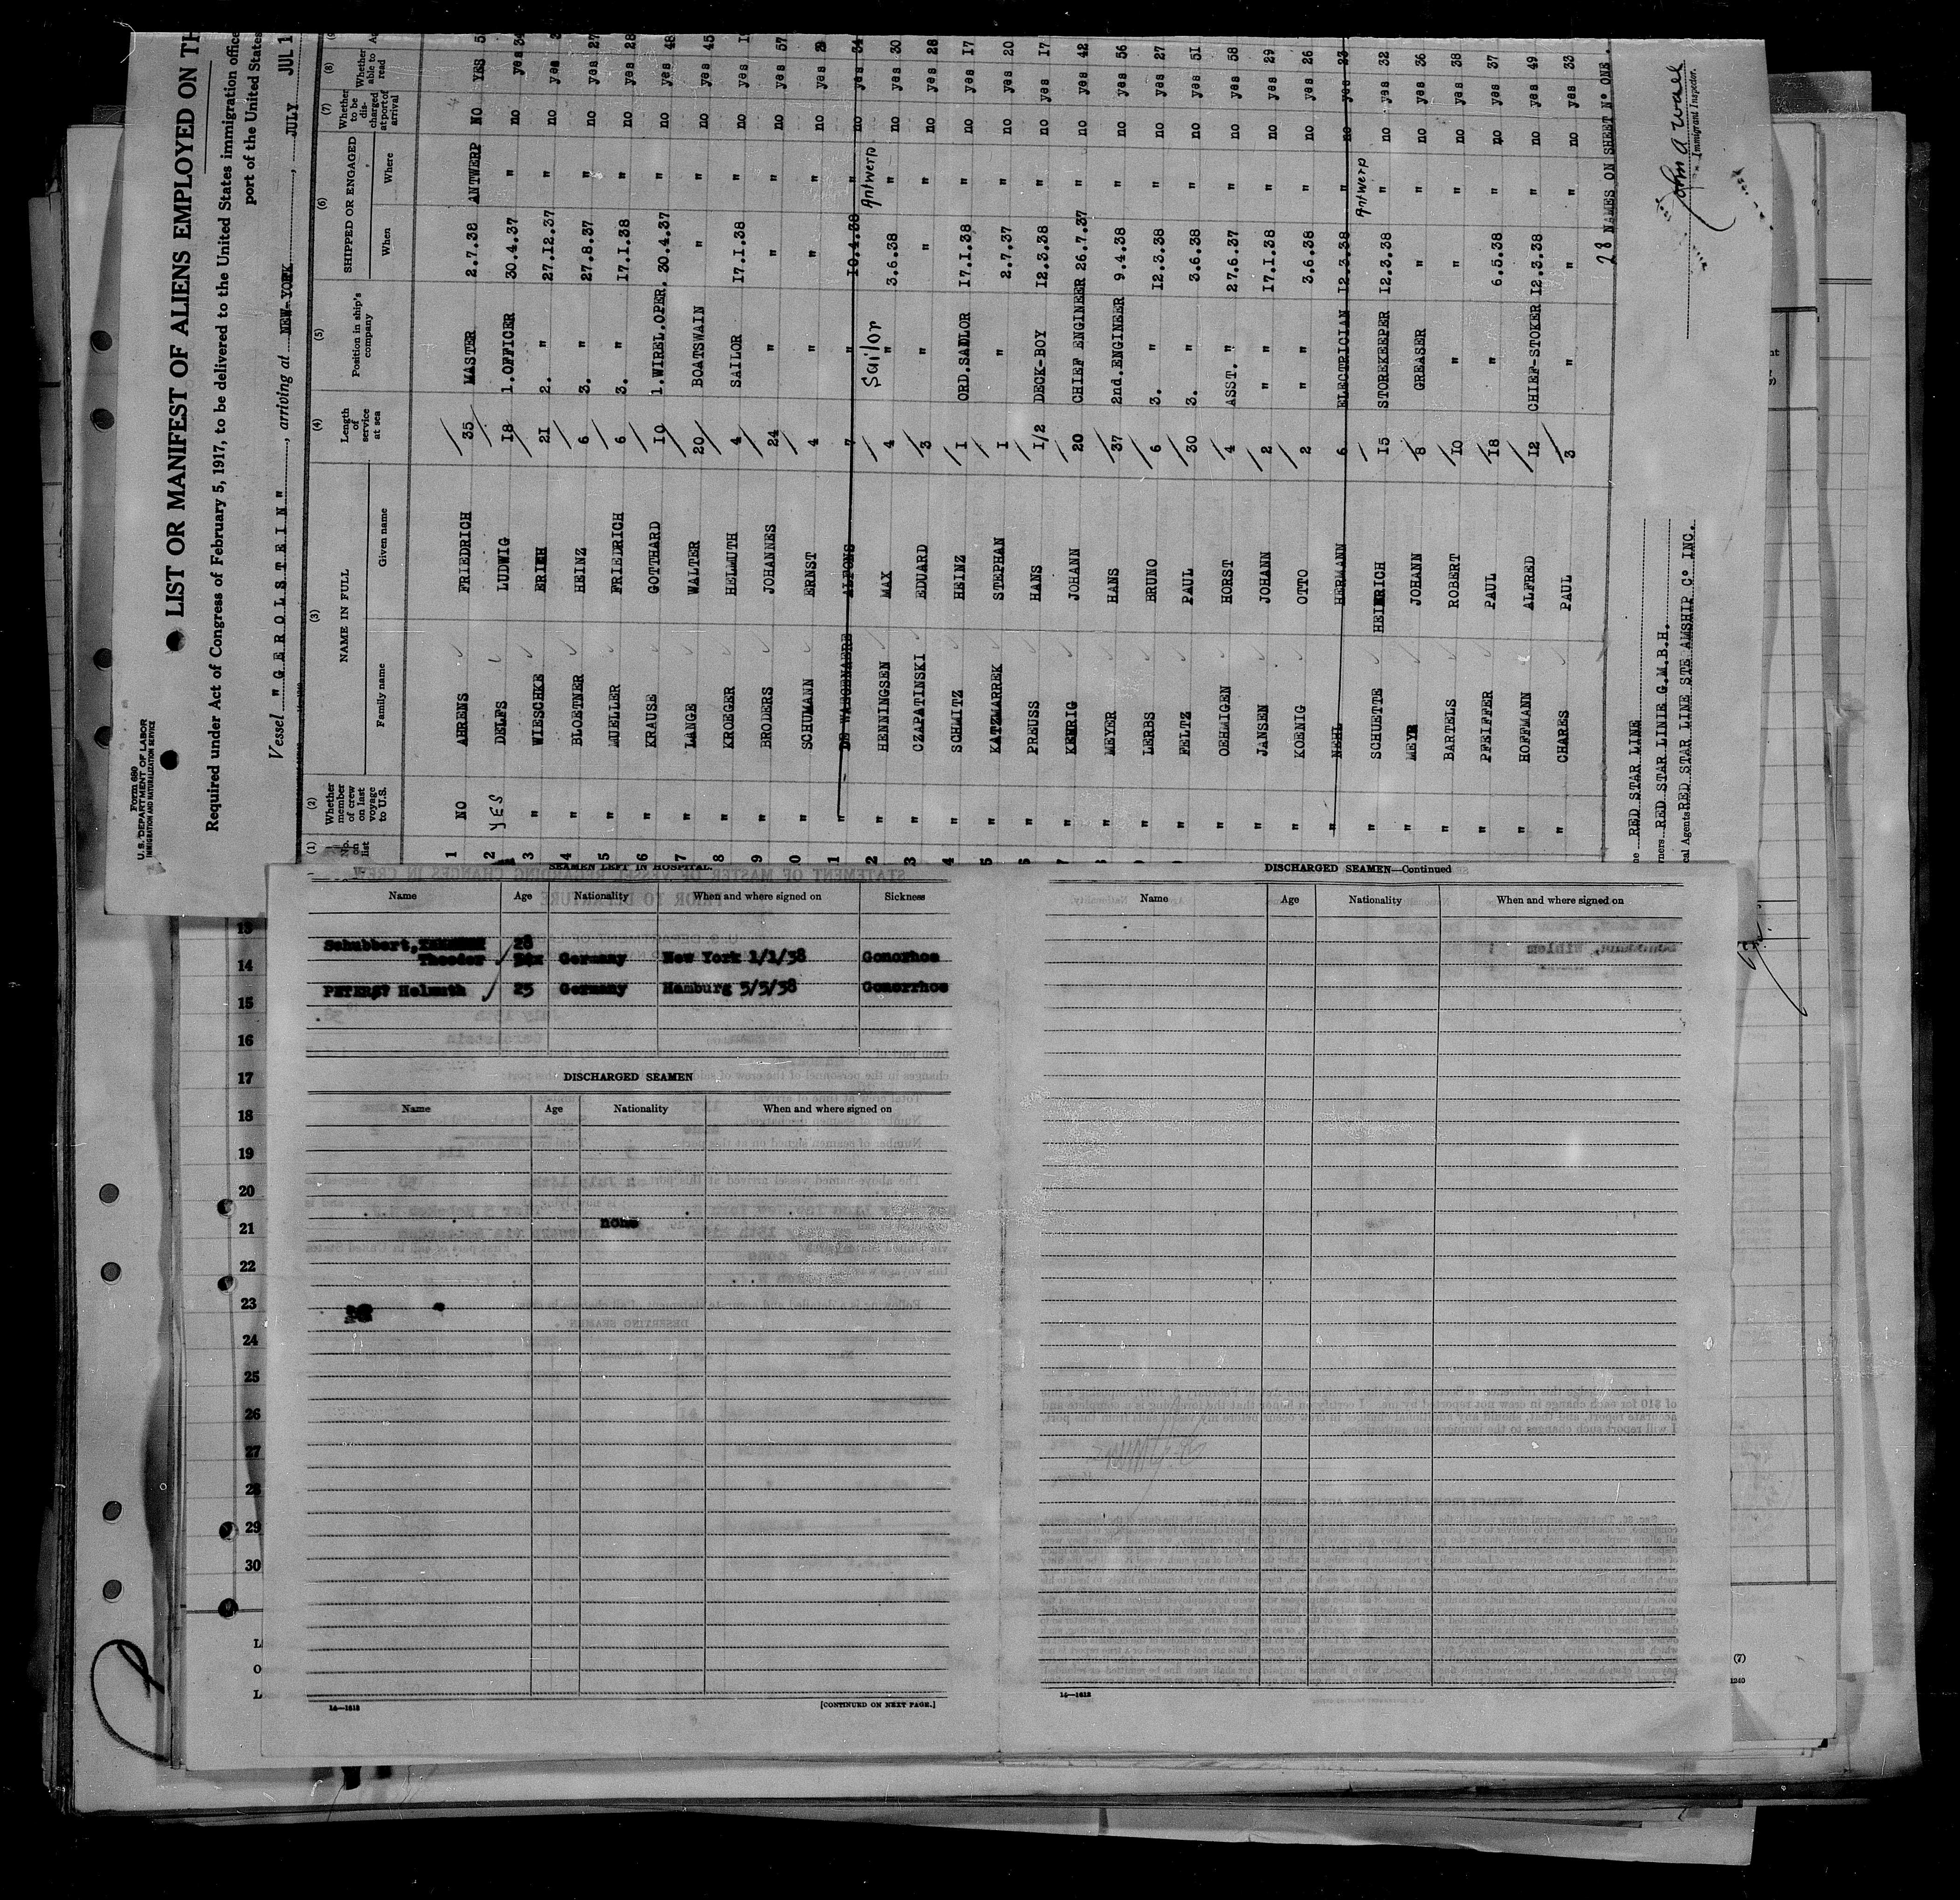 Form 680
U. S. DEPARTMENT OF LABOR
IMMIGRATION AND NATURALIZATION SERVICE
LIST OR MANIFEST OF ALIENS EMPLOYED ON TH
Required under Act of Congress of February 5, 1917, to be delivered to the United States immigration office
port of the United States
Vessel "GEROLSTEIN", arriving at NEW-YORK, JULY JUL 1
(1) (2) (3) (4) (5) (6) (7) (8)
No. on list Whether member of crew on last voyage to U.S. NAME IN FULL Length of service at sea Position in ship's company SHIPPED OR ENGAGED Whether to be discharged at port of arrival Whether able to read
Family name Given name When Where
1 NO AHRENS FRIEDRICH 35 MASTER 2.7.38 ANTWERP NO YES 5
2 YES DELFS LUDWIG 18 1.OFFICER 30.4.37 " no yes 34
3 " WIESCHKE ERICH 21 2. " 27.12.37 " no yes
4 " BLOETNER HEINZ 6 3. " 27.8.37 " no yes 27
5 " MUELLER FRIEDRICH 6 3. " 17.1.38 " no yes 28
6 " KRAUSE GOTTHARD 10 1.WIREL.OPER. 30.4.37 " no yes 48
7 " LANGE WALTER 20 BOATSWAIN " " no yes 45
8 " KROEGER HELMUTH 4 SAILOR 17.1.38 " no yes
9 " BRODERS JOHANNES 24 " " " no yes 57
0 " SCHUMANN ERNST 4 " " " no yes
1 " DE WAEGENAERE ALFONS 7 " 10.4.38 " no yes 34
2 " HENNINGSEN MAX 4 Sailor " 3.6.38 Antwerp " no yes 30
3 " CZAPATINSKI EDUARD 3 " " " no yes 28
4 " SCHMITZ HEINZ 1 ORD.SAILOR 17.1.38 " no yes 17
5 " KATZMARREK STEPHAN 1 " 2.7.37 " no yes 20
6 " PREUSS HANS 1/2 DECK-BOY 12.3.38 " no yes 17
7 " JOHANN 20 CHIEF ENGINEER 26.7.37 " no yes 42
8 " MEYER HANS 37 2nd.ENGINEER 9.4.38 " no yes 56
" LERBS BRUNO 6 3. " 12.3.38 " no yes 27
" FELTZ PAUL 30 3. " 3.6.38 " no yes 51
" OEHMIGEN HORST 4 ASST. " 27.6.37 " no yes 58
" JANSEN JOHANN 2 " " 17.1.38 " no yes 29
" KOENIG OTTO 2 " " 3.6.38 " no yes 26
" NEHL HERMANN 6 ELECTRICIAN 12.3.38 " no yes 23
" SCHUETTE HEINRICH 15 STOREKEEPER 12.3.38 Antwerp " no yes 32
" MEYR JOHANN 8 GREASER " " no yes 36
" BARTELS ROBERT 10 " " " no yes 38
" PFEIFFER PAUL 18 " 6.5.38 " no yes 37
" HOFFMANN ALFRED 12 CHIEF-STOKER 12.3.38 " no yes 49
" CHARES PAUL 3 " " " no yes 33
28 NAMES ON SHEET No ONE.
RED STAR LINE
wners RED STAR LINIE G.M.B.H.
cal Agents RED STAR LINE STEAMSHIP Co INC.
John A Wall
Immigrant Inspector.
SEAMEN LEFT IN HOSPITAL.
Name Age Nationality When and where signed on Sickness
Schubbert, Theodor 28 Germany New York 1/1/38 Gonorhoe
PETERS Helmuth 25 Germany Hamburg 5/5/38 Gonorrhoe
DISCHARGED SEAMEN
Name Age Nationality When and where signed on
none
14—1612
[CONTINUED ON NEXT PAGE.]
DISCHARGED SEAMEN—Continued
Name Age Nationality When and where signed on
14—1612
13
14
15
16
17
18
19
20
21
22
23
24
25
26
27
28
29
30
(7)
1240